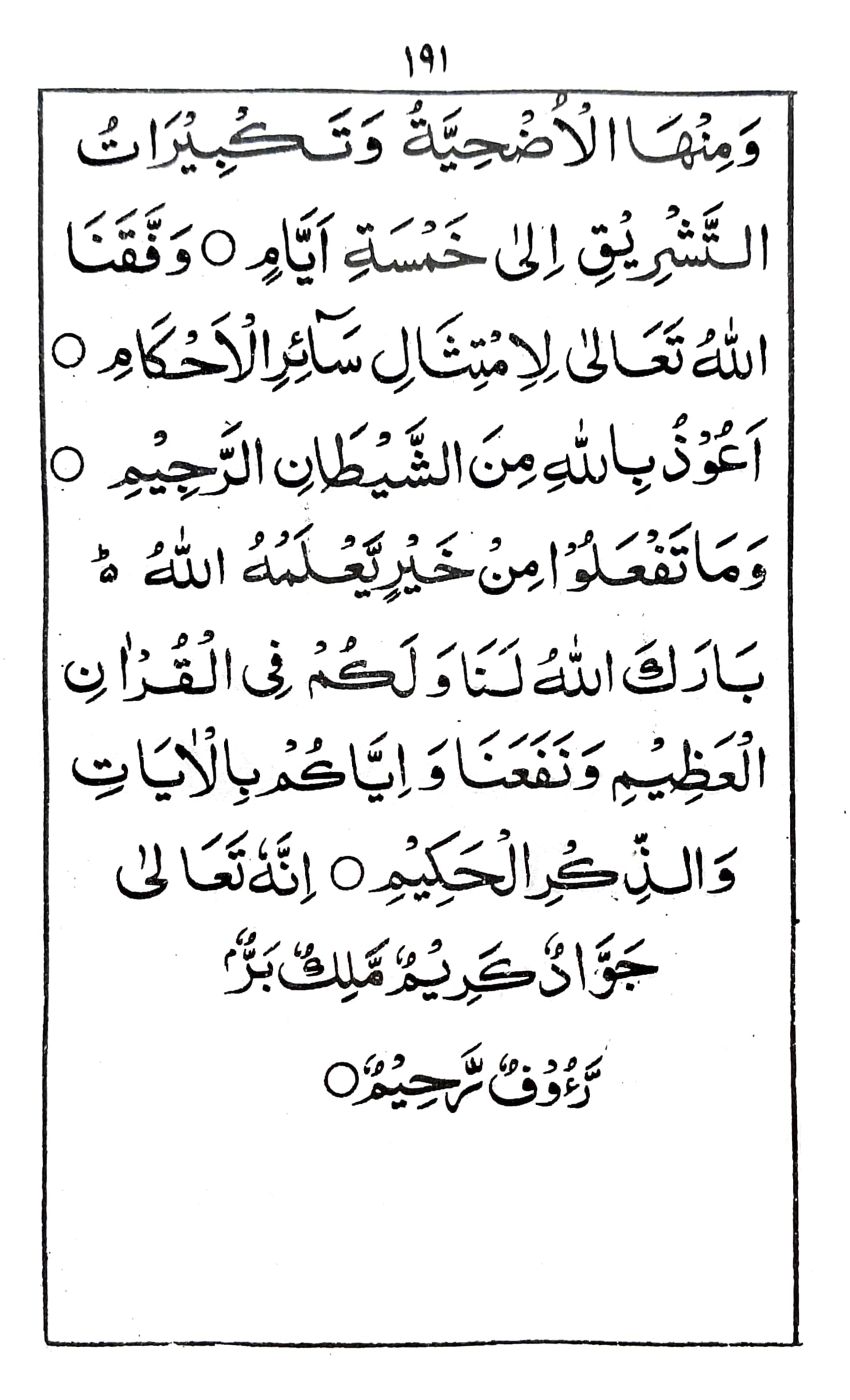 ۱۹۱
وَمِنْهَا الْاُضْحِيَّةُ وَتَكْبِيْرَاتُ
التَّشْرِيْقِ اِلٰى خَمْسَةِ اَيَّامٍ ○ وَفَّقَنَا
اللّٰهُ تَعَالٰى لِاِمْتِثَالِ سَآئِرِ الْاَحْكَامِ ○
اَعُوْذُ بِاللّٰهِ مِنَ الشَّيْطَانِ الرَّجِيْمِ ○
وَمَا تَفْعَلُوْا مِنْ خَيْرٍ يَّعْلَمْهُ اللّٰهُ ؕ
بَارَكَ اللّٰهُ لَنَا وَلَكُمْ فِى الْقُرْاٰنِ
الْعَظِيْمِ وَنَفَعَنَا وَاِيَّاكُمْ بِالْاٰيَاتِ
وَالذِّكْرِ الْحَكِيْمِ ○ اِنَّهٗ تَعَالٰى
جَوَّادٌ كَرِيْمٌ مَّلِكٌ بَرٌّ
رَّءُوْفٌ رَّحِيْمٌ ○